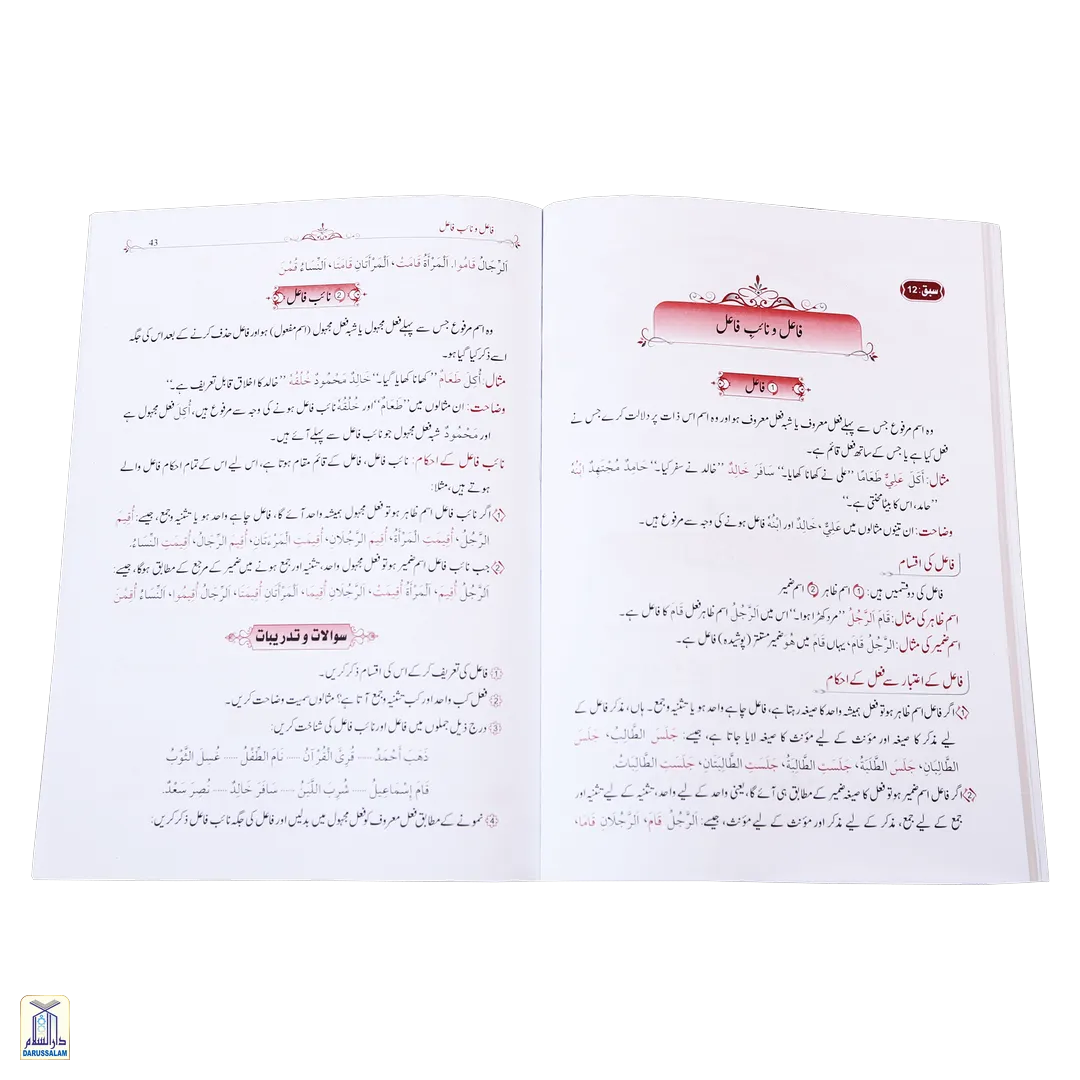 سبق: 12
فاعل و نائب فاعل
① فاعل
وہ اسم مرفوع جس سے پہلے فعل معروف یا شبہ فعل معروف ہو اور وہ اسم اس ذات پر دلالت کرے جس نے
فعل کیا ہے یا جس کے ساتھ فعل قائم ہے۔
مثال: أَكَلَ عَلِيٌّ طَعَامًا ’’علی نے کھانا کھایا۔‘‘ سَافَرَ خَالِدٌ ’’خالد نے سفر کیا۔‘‘ حَامِدٌ مُجْتَهِدٌ ابْنُهُ
’’حامد، اس کا بیٹا محنتی ہے۔‘‘
وضاحت: ان تینوں مثالوں میں عَلِيٌّ، خَالِدٌ اور ابْنُهُ فاعل ہونے کی وجہ سے مرفوع ہیں۔
فاعل کی اقسام
فاعل کی دو قسمیں ہیں: ① اسم ظاہر ② اسم ضمیر
اسم ظاہر کی مثال: قَامَ الرَّجُلُ ’’مرد کھڑا ہوا۔‘‘ اس میں الرَّجُلُ اسم ظاہر فعل قَامَ کا فاعل ہے۔
اسم ضمیر کی مثال: الرَّجُلُ قَامَ، یہاں قَامَ میں هُوَ ضمیر مستتر (پوشیدہ) فاعل ہے۔
فاعل کے اعتبار سے فعل کے احکام
① اگر فاعل اسم ظاہر ہو تو فعل ہمیشہ واحد کا صیغہ رہتا ہے، فاعل چاہے واحد ہو یا تثنیہ و جمع۔ ہاں، مذکر فاعل کے
لیے مذکر کا صیغہ اور مؤنث کے لیے مؤنث کا صیغہ لایا جاتا ہے، جیسے: جَلَسَ الطَّالِبُ، جَلَسَ
الطَّالِبَانِ، جَلَسَ الطَّلَبَةُ، جَلَسَتِ الطَّالِبَةُ، جَلَسَتِ الطَّالِبَتَانِ، جَلَسَتِ الطَّالِبَاتُ.
② اگر فاعل اسم ضمیر ہو تو فعل کا صیغہ ضمیر کے مطابق ہی آئے گا، یعنی واحد کے لیے واحد، تثنیہ کے لیے تثنیہ اور
جمع کے لیے جمع، مذکر کے لیے مذکر اور مؤنث کے لیے مؤنث، جیسے: اَلرَّجُلُ قَامَ، اَلرَّجُلَانِ قَامَا،
فاعل و نائب فاعل
43
اَلرِّجَالُ قَامُوا. اَلْمَرْأَةُ قَامَتْ، اَلْمَرْأَتَانِ قَامَتَا، اَلنِّسَاءُ قُمْنَ
② نائب فاعل
وہ اسم مرفوع جس سے پہلے فعل مجہول یا شبہ فعل مجہول (اسم مفعول) ہو اور فاعل حذف کرنے کے بعد اس کی جگہ
اسے ذکر کیا گیا ہو۔
مثال: أُكِلَ طَعَامٌ ’’کھانا کھایا گیا۔‘‘ خَالِدٌ مَحْمُودٌ خُلُقُهُ ’’خالد کا اخلاق قابل تعریف ہے۔‘‘
وضاحت: ان مثالوں میں ’’طَعَامٌ‘‘ اور خُلُقُهُ نائب فاعل ہونے کی وجہ سے مرفوع ہیں، أُكِلَ فعل مجہول ہے
اور مَحْمُودٌ شبہ فعل مجہول جو نائب فاعل سے پہلے آئے ہیں۔
نائب فاعل کے احکام: نائب فاعل، فاعل کے قائم مقام ہوتا ہے، اس لیے اس کے تمام احکام فاعل والے
ہوتے ہیں، مثلا:
① اگر نائب فاعل اسم ظاہر ہو تو فعل مجہول ہمیشہ واحد آئے گا، فاعل چاہے واحد ہو یا تثنیہ و جمع، جیسے: أُقِيمَ
الرَّجُلُ، أُقِيمَتِ الْمَرْأَةُ، أُقِيمَ الرَّجُلَانِ، أُقِيمَتِ الْمَرْءَتَانِ، أُقِيمَ الرِّجَالُ، أُقِيمَتِ النِّسَاءُ.
② جب نائب فاعل اسم ضمیر ہو تو فعل مجہول واحد، تثنیہ اور جمع ہونے میں ضمیر کے مرجع کے مطابق ہوگا، جیسے:
اَلرَّجُلُ أُقِيمَ، اَلْمَرْأَةُ أُقِيمَتْ، الرَّجُلَانِ أُقِيمَا، الْمَرْأَتَانِ أُقِيمَتَا، الرِّجَالُ أُقِيمُوا، النِّسَاءُ أُقِمْنَ
سوالات و تدریبات
① فاعل کی تعریف کر کے اس کی اقسام ذکر کریں۔
② فعل کب واحد اور کب تثنیہ و جمع آتا ہے؟ مثالوں سمیت وضاحت کریں۔
③ درج ذیل جملوں میں فاعل اور نائب فاعل کی شناخت کریں:
ذَهَبَ أَحْمَدُ ..... قُرِئَ الْقُرْآنُ ..... نَامَ الطِّفْلُ ..... غُسِلَ الثَّوْبُ
قَامَ إِسْمَاعِيلُ ..... شُرِبَ اللَّبَنُ ..... سَافَرَ خَالِدٌ ..... نُصِرَ سَعْدٌ.
④ نمونے کے مطابق فعل معروف کو فعل مجہول میں بدلیں اور فاعل کی جگہ نائب فاعل ذکر کریں:
دارالسلام
DARUSSALAM